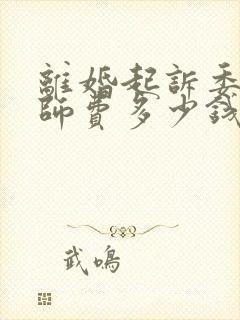 離婚起訴委
師費多少錢
武鳴